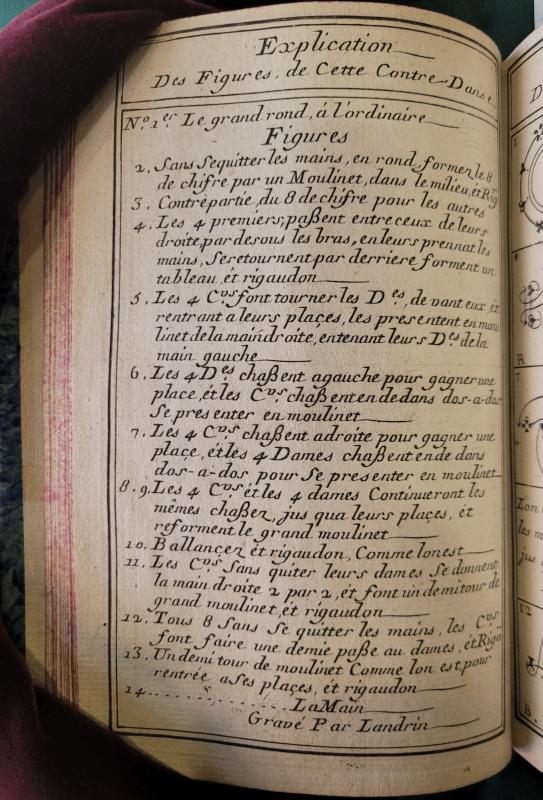 Explication
Des Figures, de Cette Contre-Danse
N.º 1.er Le grand rond, á l'ordinaire
Figures
2. Sans Sequitter les mains, en rond, formez le 8
de chifre par un Moulinet, dans le milieu, ét Rig
3. Contrepartie, du 8 de chifre pour les autres
4. Les 4 premiers, paßent entre ceux de leurs
droite, par desous les bras, en leurs prennat les
mains, Se retournent par derriere forment un
tableau, ét rigaudon
5. Les 4 C.vs font tourner les D.es, de vant eux, ét
rentrant a leurs plaçes, les presentent en mou
linet de la main droite, entenant leurs D.es de la
main gauche
6. Les 4 D.es chaßent agauche pour gagner une
place, ét les C.vs chaßent en de dans dos-a-dos
Se pres enter en moulinet
7. Les 4 C.vs chaßent adroite pour gagner une
plaçe, ét les 4 Dames chaßent en de dans
dos-a-dos pour Se pres enter en moulinet
8. 9. Les 4 C.vs ét les 4 dames Continueront les
mêmes chaßez, jus qua leurs plaçes, ét
reforment le grand moulinet
10. Ballançez ét rigaudon, Comme lon est
11. Les C.vs Sans quiter leurs dames Se donnent
la main droite 2 par 2, ét font un demi tour de
grand moulinet, ét rigaudon
12. Tous 8 Sans Se quitter les mains, les C.vs
font faire une demie paße au dames, ét Rigā
13. Un demi tour de moulinet Comme lon est, pour
rentrée a Ses plaçes, ét rigaudon
14 . . . . . . . . . . . . . La Main
Gravé Par Landrin